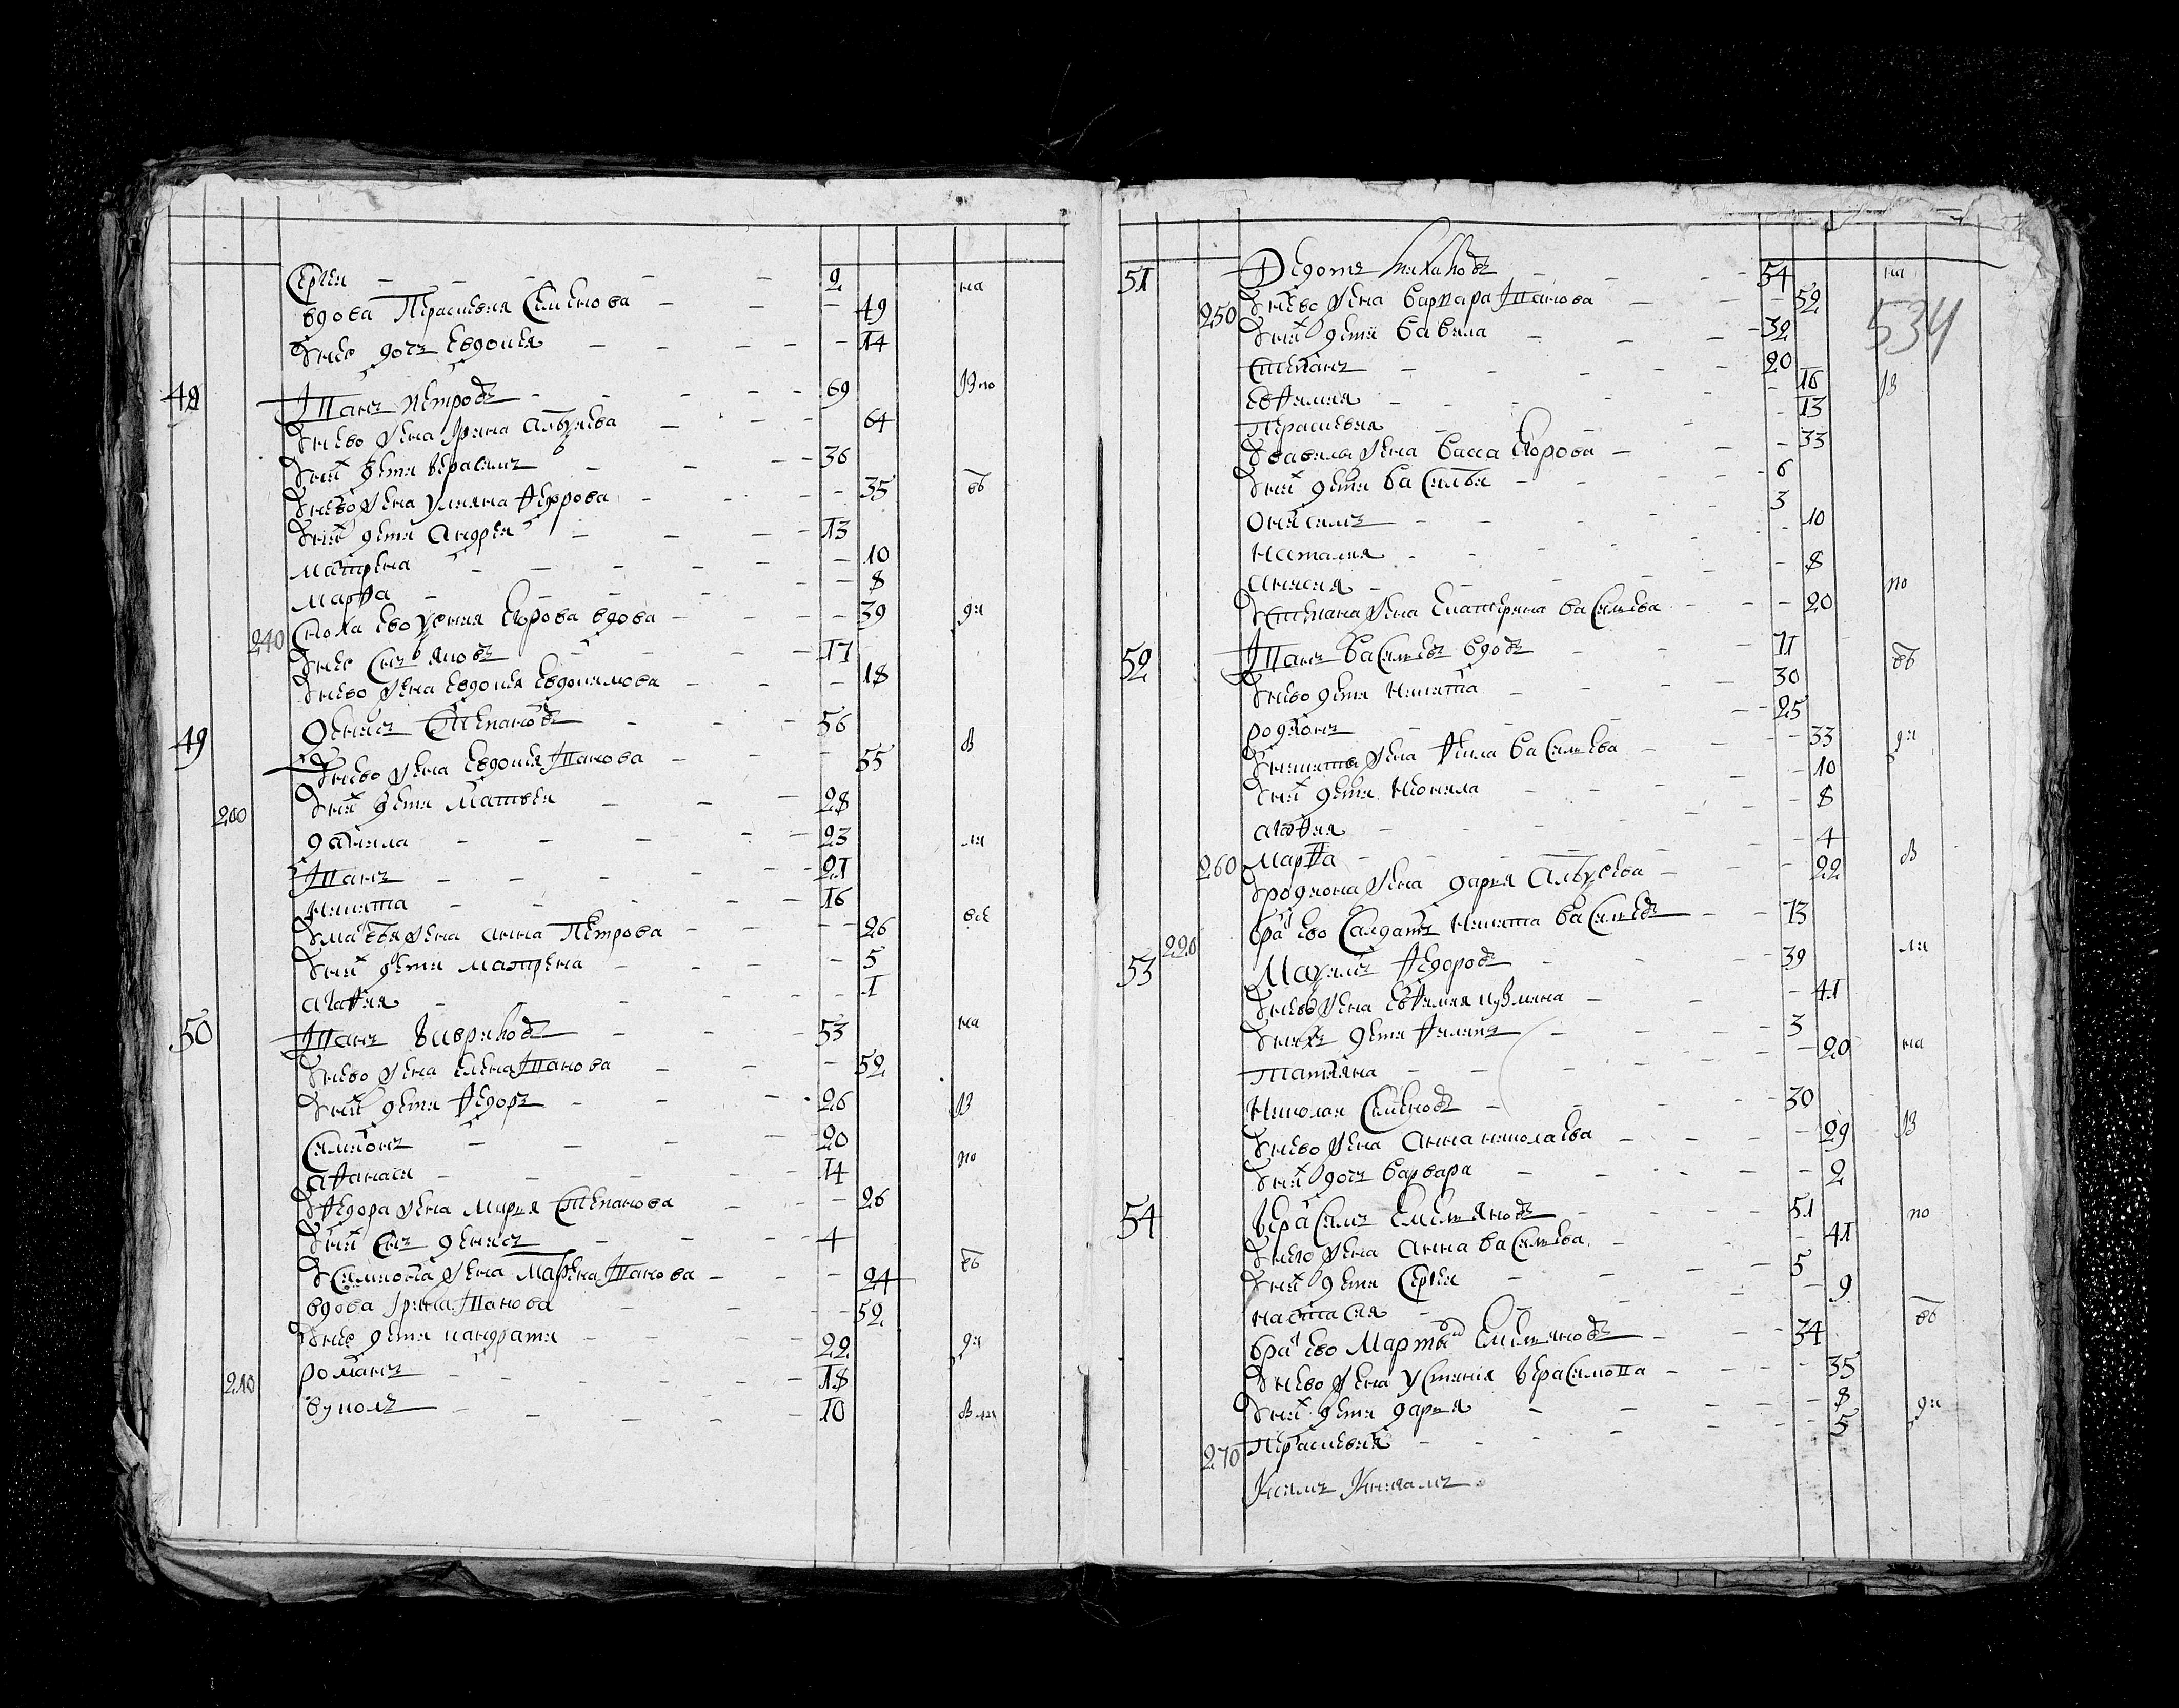 Сергеи 2 на
вдова Прасковья Семенова 49
У нее дочь Евдокия 14
48 Иванъ Петровъ 69 Із по
У него жена Ирина Алѣѯеева 64
У них дети Герасимъ 36
У него жена Улияна Федорова 35 въ
У них дети Андреи 13
Матрена 10
Марфа 8
240 Сноха ево Ѯения Егорова вдова 39 ди
У нее сынъ Яковъ 17
У него жена Евдокия Евдокимова 18
49 Денисъ Степановъ 56
У него жена Евдокия Иванова 55
200 У них дети Матвеи 28
Данила 23 ли
Иванъ 21
Никита 16
У Матвея жена Анна Петрова 26 все
У них дети Матрена 5
Агафия 1
50 Иванъ Гавриловъ 53 на
У него жена Елена Иванова 52
У них дети Федоръ 26 Із
Симионъ 20
Афанаси 14 по
У Федора жена Марья Степанова 26
У них сынъ Денисъ 4
У Симиона жена Марфена Иванова 24 въ
вдова Ирина Иванова 52
У нее дети Кандрати 22 ди
210 Романъ 18
Вуколъ 10
534
51 Федотъ 54 на
У него жена Варвара Иванова 52
250 У них дети Вавила 32
Степанъ 20
Евфимия 16 Із
Прасковья 13
У Вавилы жена Васса Егорова 33
У них дети Василеи 6
Онисимъ 3
Наталия 10
Анисия 8
У Степана жена Екатерина Васильева 20 по
52 Иванъ Васильевъ вдовъ 71
У него дети Никита 30 въ
Родионъ 25
У Никиты жена Фекла Васильева 33 ди
У них дети Неонила 10
Агафия 8
260 Марфа 4
У Родиона жена Дарья Алѣѯеева 22
братъ ево салдатъ Никита Васильевъ 73
53 220 Федоровъ 39 ли
У него жена Евфимия Кузмина 41
У нихъ дети Филипъ 3
Татияна 20 на
Николаи Семеновъ 30
У него жена Анна Николаева 29 Із
У них дочь Варвара 2
54 Герасимъ Емельяновъ 51 по
У него жена Анна Васильева 41
У них дети Сергеи 5
Настасия 9
братъ ево Мартын Емельяновъ 34 въ
У него жена Устиния Герасимова 35
У них дети Дарья 8 ди
270 Прасковья 5